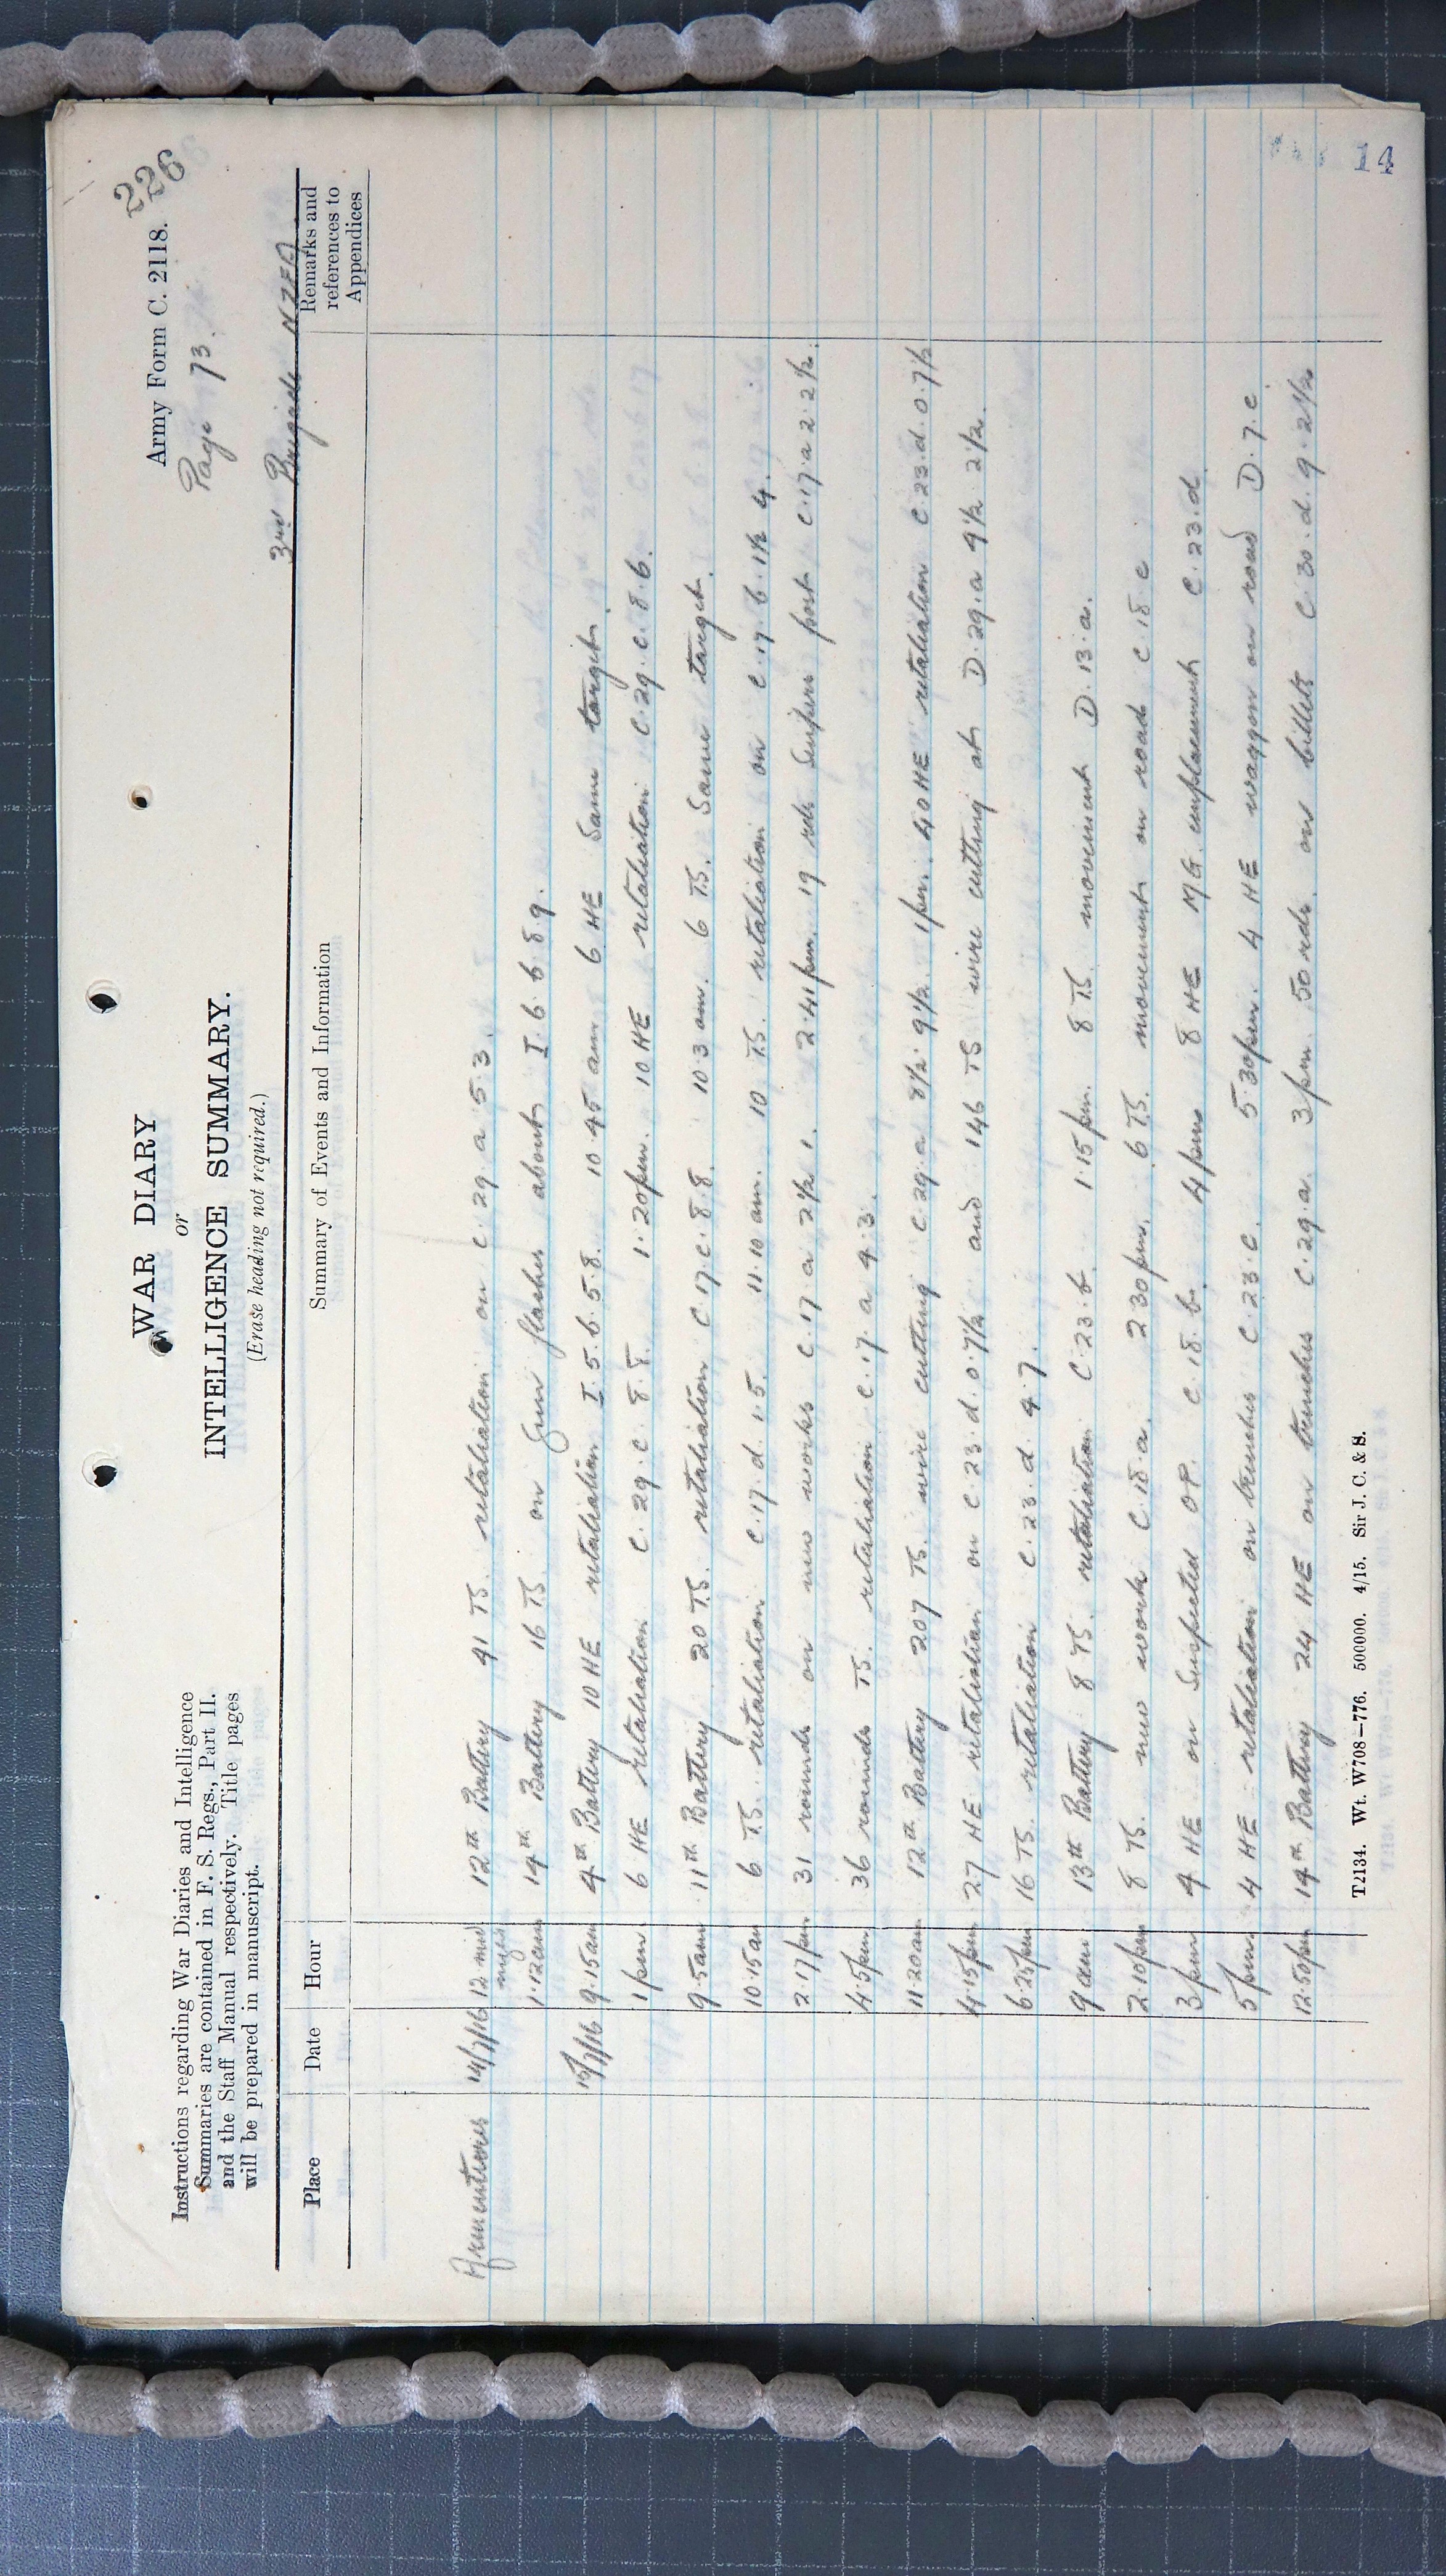 Army Form C. 2118.
226
Page 73.
WAR DIARY
or
INTELLIGENCE SUMMARY.
(Erase heading not required.)
3rd Brigade NZFA
Instructions regarding War Diaries and Intelligence
Summaries are contained in F. S. Regs., Part II.
and the Staff Manual respectively. Title pages
will be prepared in manuscript.
Place Date Hour Summary of Events and Information Remarks and references to Appendices
Armentieres 14/7/16 12 mid night 12th Battery 41 TS. retaliation on C.29.a.5.3.
1.12am 14th Battery 16 TS. on Gun flashes about I.6.b.8.9.
15/7/16 9.15am 4th Battery 10 HE retaliation I.5.b.5.8. 10.45 am 6 HE Same target.
1 pm 6 HE retaliation C.29.c.8.8. 1.20pm. 10 HE retaliation C.29.c.8.6.
9.5am 11th Battery 20 TS. retaliation C.17.c.8.8. 10.3 am. 6 TS. Same target.
10.15am 6 TS. retaliation C.17.d.1.5. 11.10 am. 10 TS. retaliation on C.17.b.1½ 4.
2.17pm 31 rounds on new works C.17.a 2½ 1. 2.41pm. 19 rds Snipers post C.17.a 2.2½.
4.5pm 36 rounds TS. retaliation C.17.a 4.3.
11.20am 12th Battery 207 TS. wire cutting C.29.a 8½.9½. 1pm. 40 HE retaliation C.23.d.0.7½
4.15pm 27 HE retaliation on C.23.d.0.7½ and 146 TS wire cutting at D.29.a 9½.2½.
6.25pm 16 TS. retaliation C.23.d.4.7.
9am 13th Battery 8 TS. retaliation C.23.b. 1.15pm. 8 TS. movement D.13.a.
2.10pm 8 TS. new work C.18.a. 2.30pm. 6 TS. movement on road C.18.c
3pm 4 HE on Suspected OP. C.18.b. 4pm 8 HE MG. emplacement C.23.d
5pm 4 HE retaliation on trenches C.23.c. 5.30pm. 4 HE waggon on road D.7.c
12.50pm 14th Battery 24 HE on trenches C.29.a. 3pm. 50 rds. on billets C.30.d.9.2½
T2134. Wt. W708—776. 500000. 4/15. Sir J. C. & S.
14